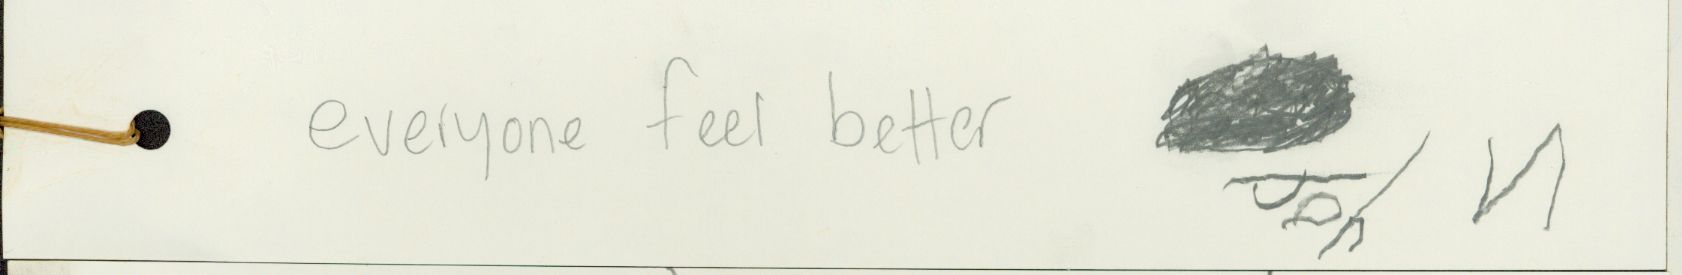 everyone feel better